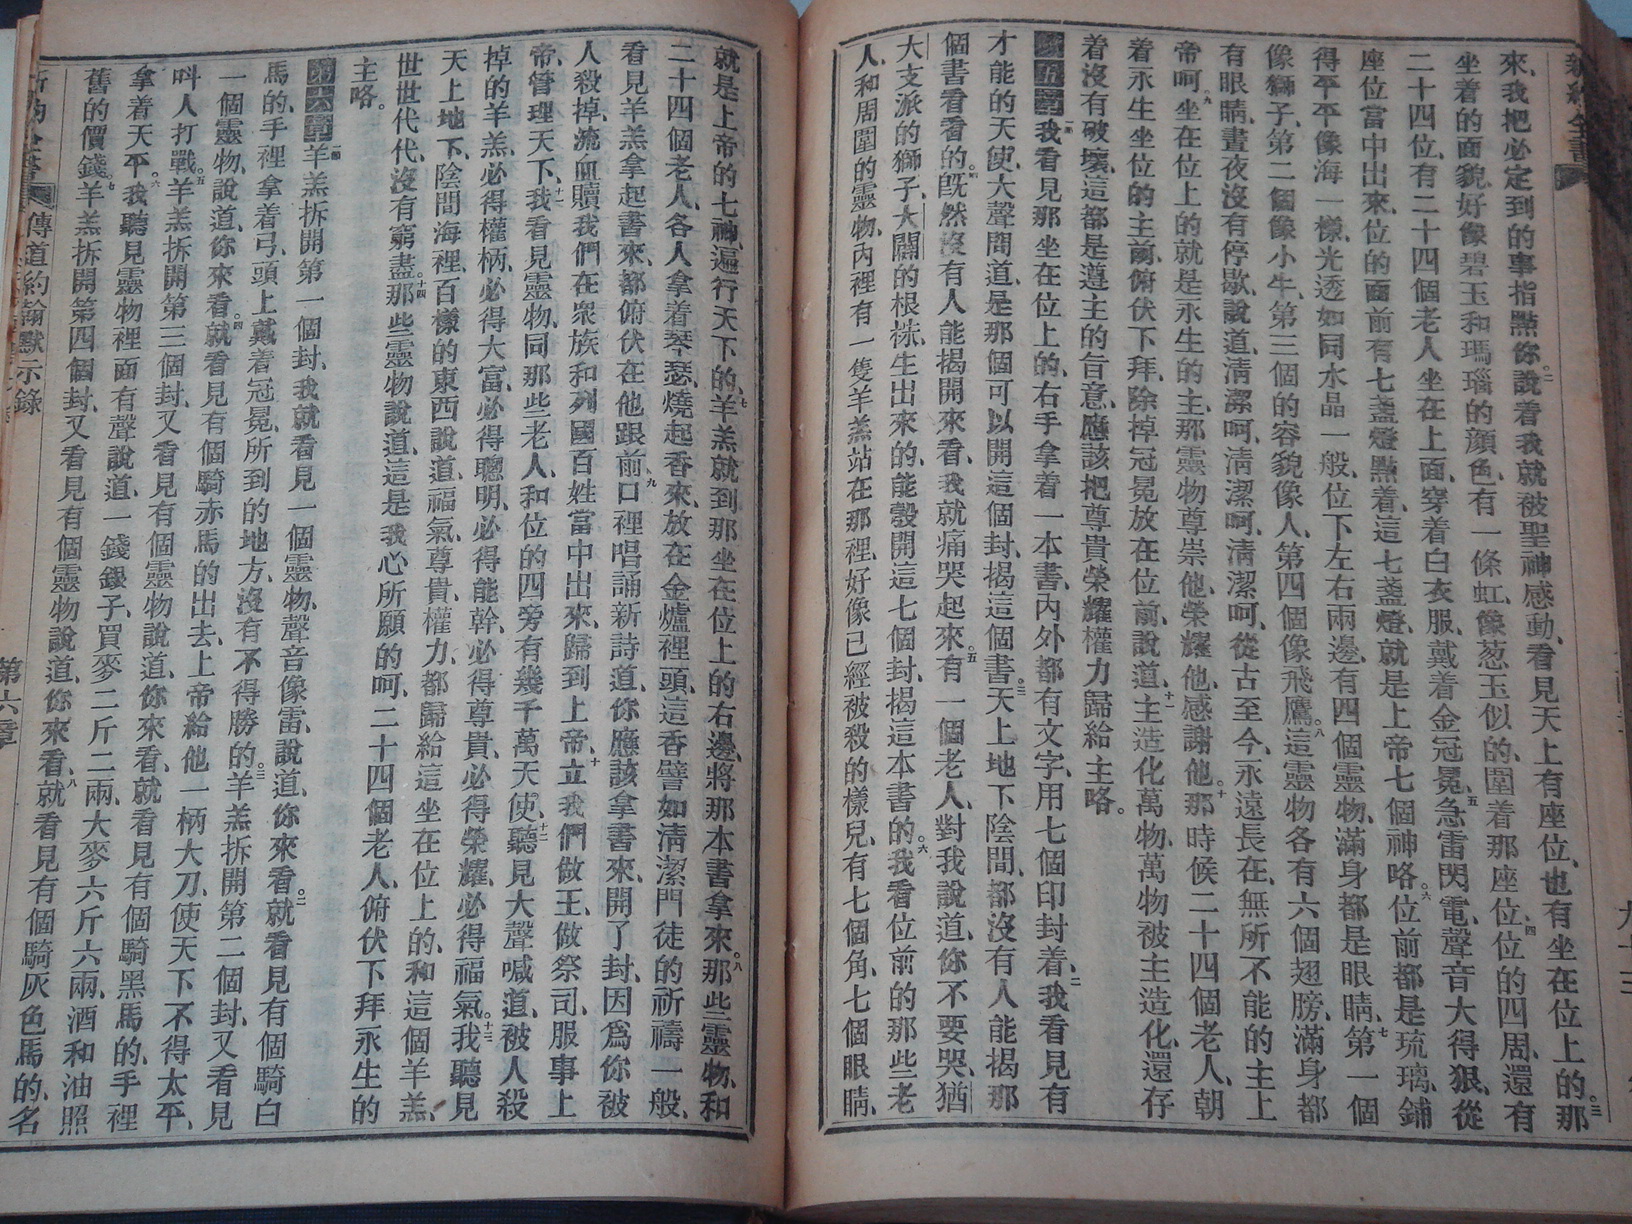 新約全書
來、我把必定到的事指點你。二說着我就被聖神感動、看見天上有座位、也有坐在位上的。三那
坐着的面貌、好像碧玉和瑪瑙的顔色、有一條虹、像葱玉似的、圍着那座位、四位的四周、還有
二十四位、有二十四個老人坐在上面、穿着白衣服、戴着金冠冕、五急雷閃電、聲音大得狠、從
座位當中出來、位的面前有七盞燈點着、這七盞燈、就是上帝七個神略。六位前都是琉璃、鋪
得平平像海一樣、光透如同水晶一般、位下左右兩邊、有四個靈物、滿身都是眼睛、七第一個
像獅子、第二個像小牛、第三個的容貌像人、第四個像飛鷹。八這靈物各有六個翅膀、滿身都
有眼睛、晝夜沒有停歇、說道、淸潔呵、淸潔呵、淸潔呵、從古至今、永遠長在、無所不能的主上
帝呵。九坐在位上的、就是永生的主、那靈物尊崇他、榮耀他、感謝他。十那時候二十四個老人、朝
着永生坐位的主前、俯伏下拜、除掉冠冕放在位前、說道、十一主造化萬物、萬物被主造化、還存
着沒有破壞、這都是遵主的旨意、應該把尊貴榮耀權力歸給主略。
第五章一我看見那坐在位上的、右手拿着一本書、內外都有文字、用七個印封着、二我看見有
才能的天使、大聲問道、是那個可以開這個封、揭這個書。三天上地下陰間、都沒有人能揭那
個書看看的。四旣然沒有人能揭開來看、我就痛哭起來。五有一個老人、對我說道、你不要哭、猶
大支派的獅子、大闢的根株、生出來的、能彀開這七個封、揭這本書的。六我看位前的那些老
人、和周圍的靈物、內裡有一隻羊羔站在那裡、好像已經被殺的樣兒、有七個角、七個眼睛、
就是上帝的七神、遍行天下的、七羊羔就到那坐在位上的右邊、將那本書拿來。八那些靈物、和
二十四個老人、各人拿着琴瑟、燒起香來、放在金爐裡頭、這香譬如淸潔門徒的祈禱一般、
看見羊羔拿起書來、都俯伏在他跟前、九口裡唱誦新詩道、你應該拿書來、開了封、因爲你被
人殺掉、流血贖我們在衆族和列國百姓當中出來、歸到上帝、十立我們做王、做祭司、服事上
帝、管理天下、十一我看見靈物、同那些老人、和位的四旁有幾千萬天使、十二聽見大聲喊道、被人殺
掉的羊羔、必得權柄、必得大富、必得聰明、必得能幹、必得尊貴、必得榮耀、必得福氣。十三我聽見
天上地下、陰間海裡、百樣的東西說道、福氣、尊貴、權力、都歸給這坐在位上的、和這個羊羔、
世世代代、沒有窮盡。十四那些靈物說道、這是我心所願的呵、二十四個老人、俯伏下拜永生的
主略。
第六章一羊羔拆開第一個封、我就看見一個靈物、聲音像雷、說道、你來看。二就看見有個騎白
馬的、手裡拿着弓、頭上戴着冠冕、所到的地方、沒有不得勝的。三羊羔拆開第二個封、又看見
一個靈物、說道、你來看。四就看見有個騎赤馬的出去、上帝給他一柄大刀、使天下不得太平、
叫人打戰。五羊羔拆開第三個封、又看見有個靈物說道、你來看、就看見有個騎黑馬的、手裡
拿着天平。六我聽見靈物裡面有聲說道、一錢銀子、買麥二斤二兩、大麥六斤六兩、酒和油照
舊的價錢。七羊羔拆開第四個封、又看見有個靈物說道、你來看、八就看見有個騎灰色馬的、名
新約全書 傳道約翰默示錄 第六章